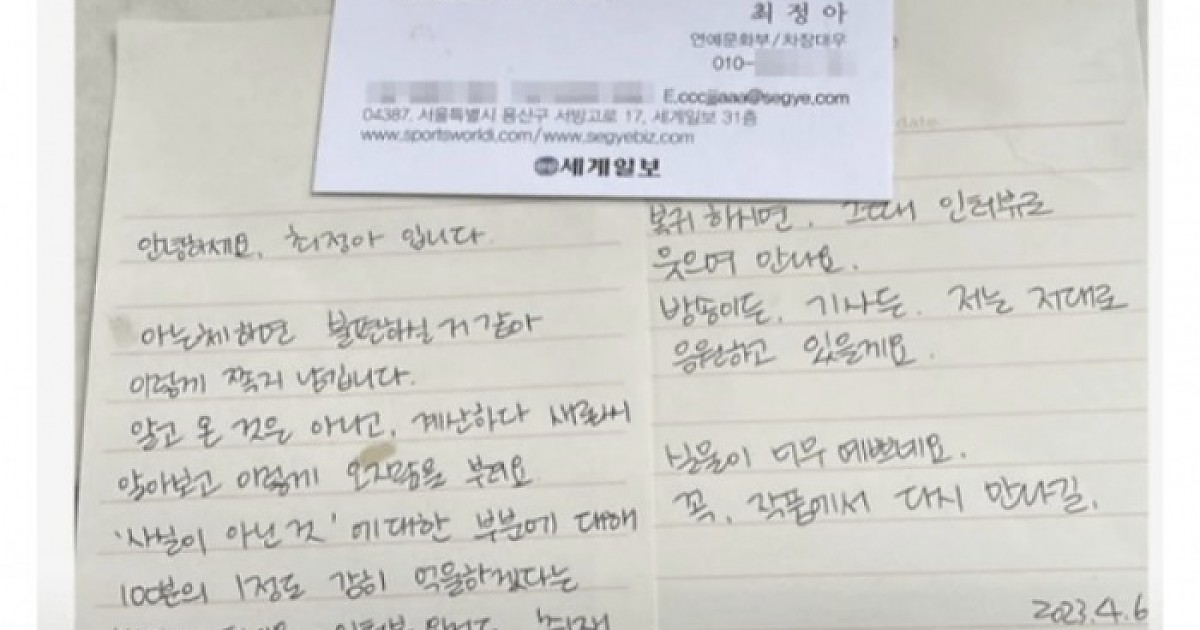 최정아
연예문화부/차장대우
010-
E.cccjjaaa@segye.com
04387, 서울특별시 용산구 서빙고로 17, 세계일보 31층
www.sportsworldi.com/www.segyebiz.com
세계일보
안녕하세요, 최정아 입니다.
아는체하면 불편하실 거 같아
이렇게 쪽지 남깁니다.
알고 온 것은 아니고, 계산하다 새롬씨
알아보고 이렇게 오지랖을 부려요
'사실이 아닌 것'에 대한 부분에 대해
100분의 1정도 감히 억울하겠다는
date
복귀 하시면, 그때 인터뷰로
웃으며 만나요.
방송이든, 기사든. 저는 저대로
응원하고 있을게요.
실물이 너무 예쁘네요.
꼭, 작품에서 다시 만나길,
2023.4.6